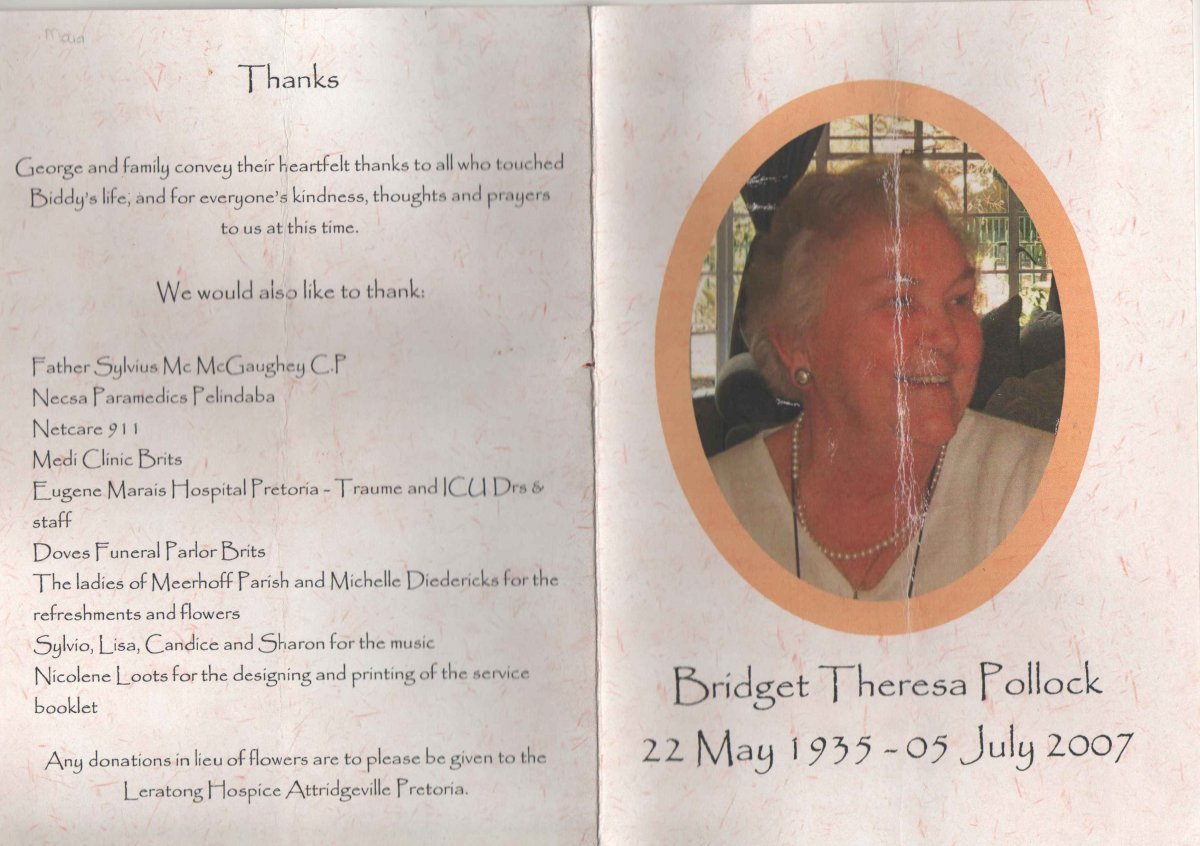 Maia
Thanks
George and family convey their heartfelt thanks to all who touched
Biddy's life, and for everyone's kindness, thoughts and prayers
to us at this time.
We would also like to thank:
Father Sylvius Mc McGaughey C.P
Necsa Paramedics Pelindaba
Netcare 911
Medi Clinic Brits
Eugene Marais Hospital Pretoria - Traume and ICU Drs &
staff
Doves Funeral Parlor Brits
The ladies of Meerhoff Parish and Michelle Diedericks for the
refreshments and flowers
Sylvio, Lisa, Candice and Sharon for the music
Nicolene Loots for the designing and printing of the service
booklet
Any donations in lieu of flowers are to please be given to the
Leratong Hospice Attridgeville Pretoria.
Bridget Theresa Pollock
22 May 1935 - 05 July 2007